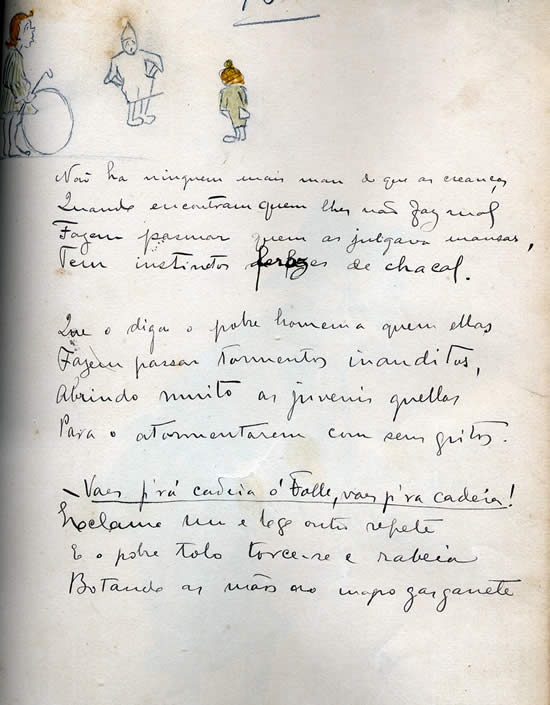 Não ha ninguem mais mau do que as creanças
Quando encontram quem lhes não faz mal
Fazem pasmar quem as julgava mansas,
Tem instinctos ferozes de chacal.
Que o diga o pobre homem a quem ellas
Fazem passar tormentos inauditos,
Abrindo muito as juvenis guellas
Para o atormentarem com seus gritos.
– Vaes p'rá cadeia ó Falle, vaes p'ra cadeia!
Exclama um e logo outro repete
E o pobre tolo torce-se e rabeia
Botando as mãos ao magro gasganete